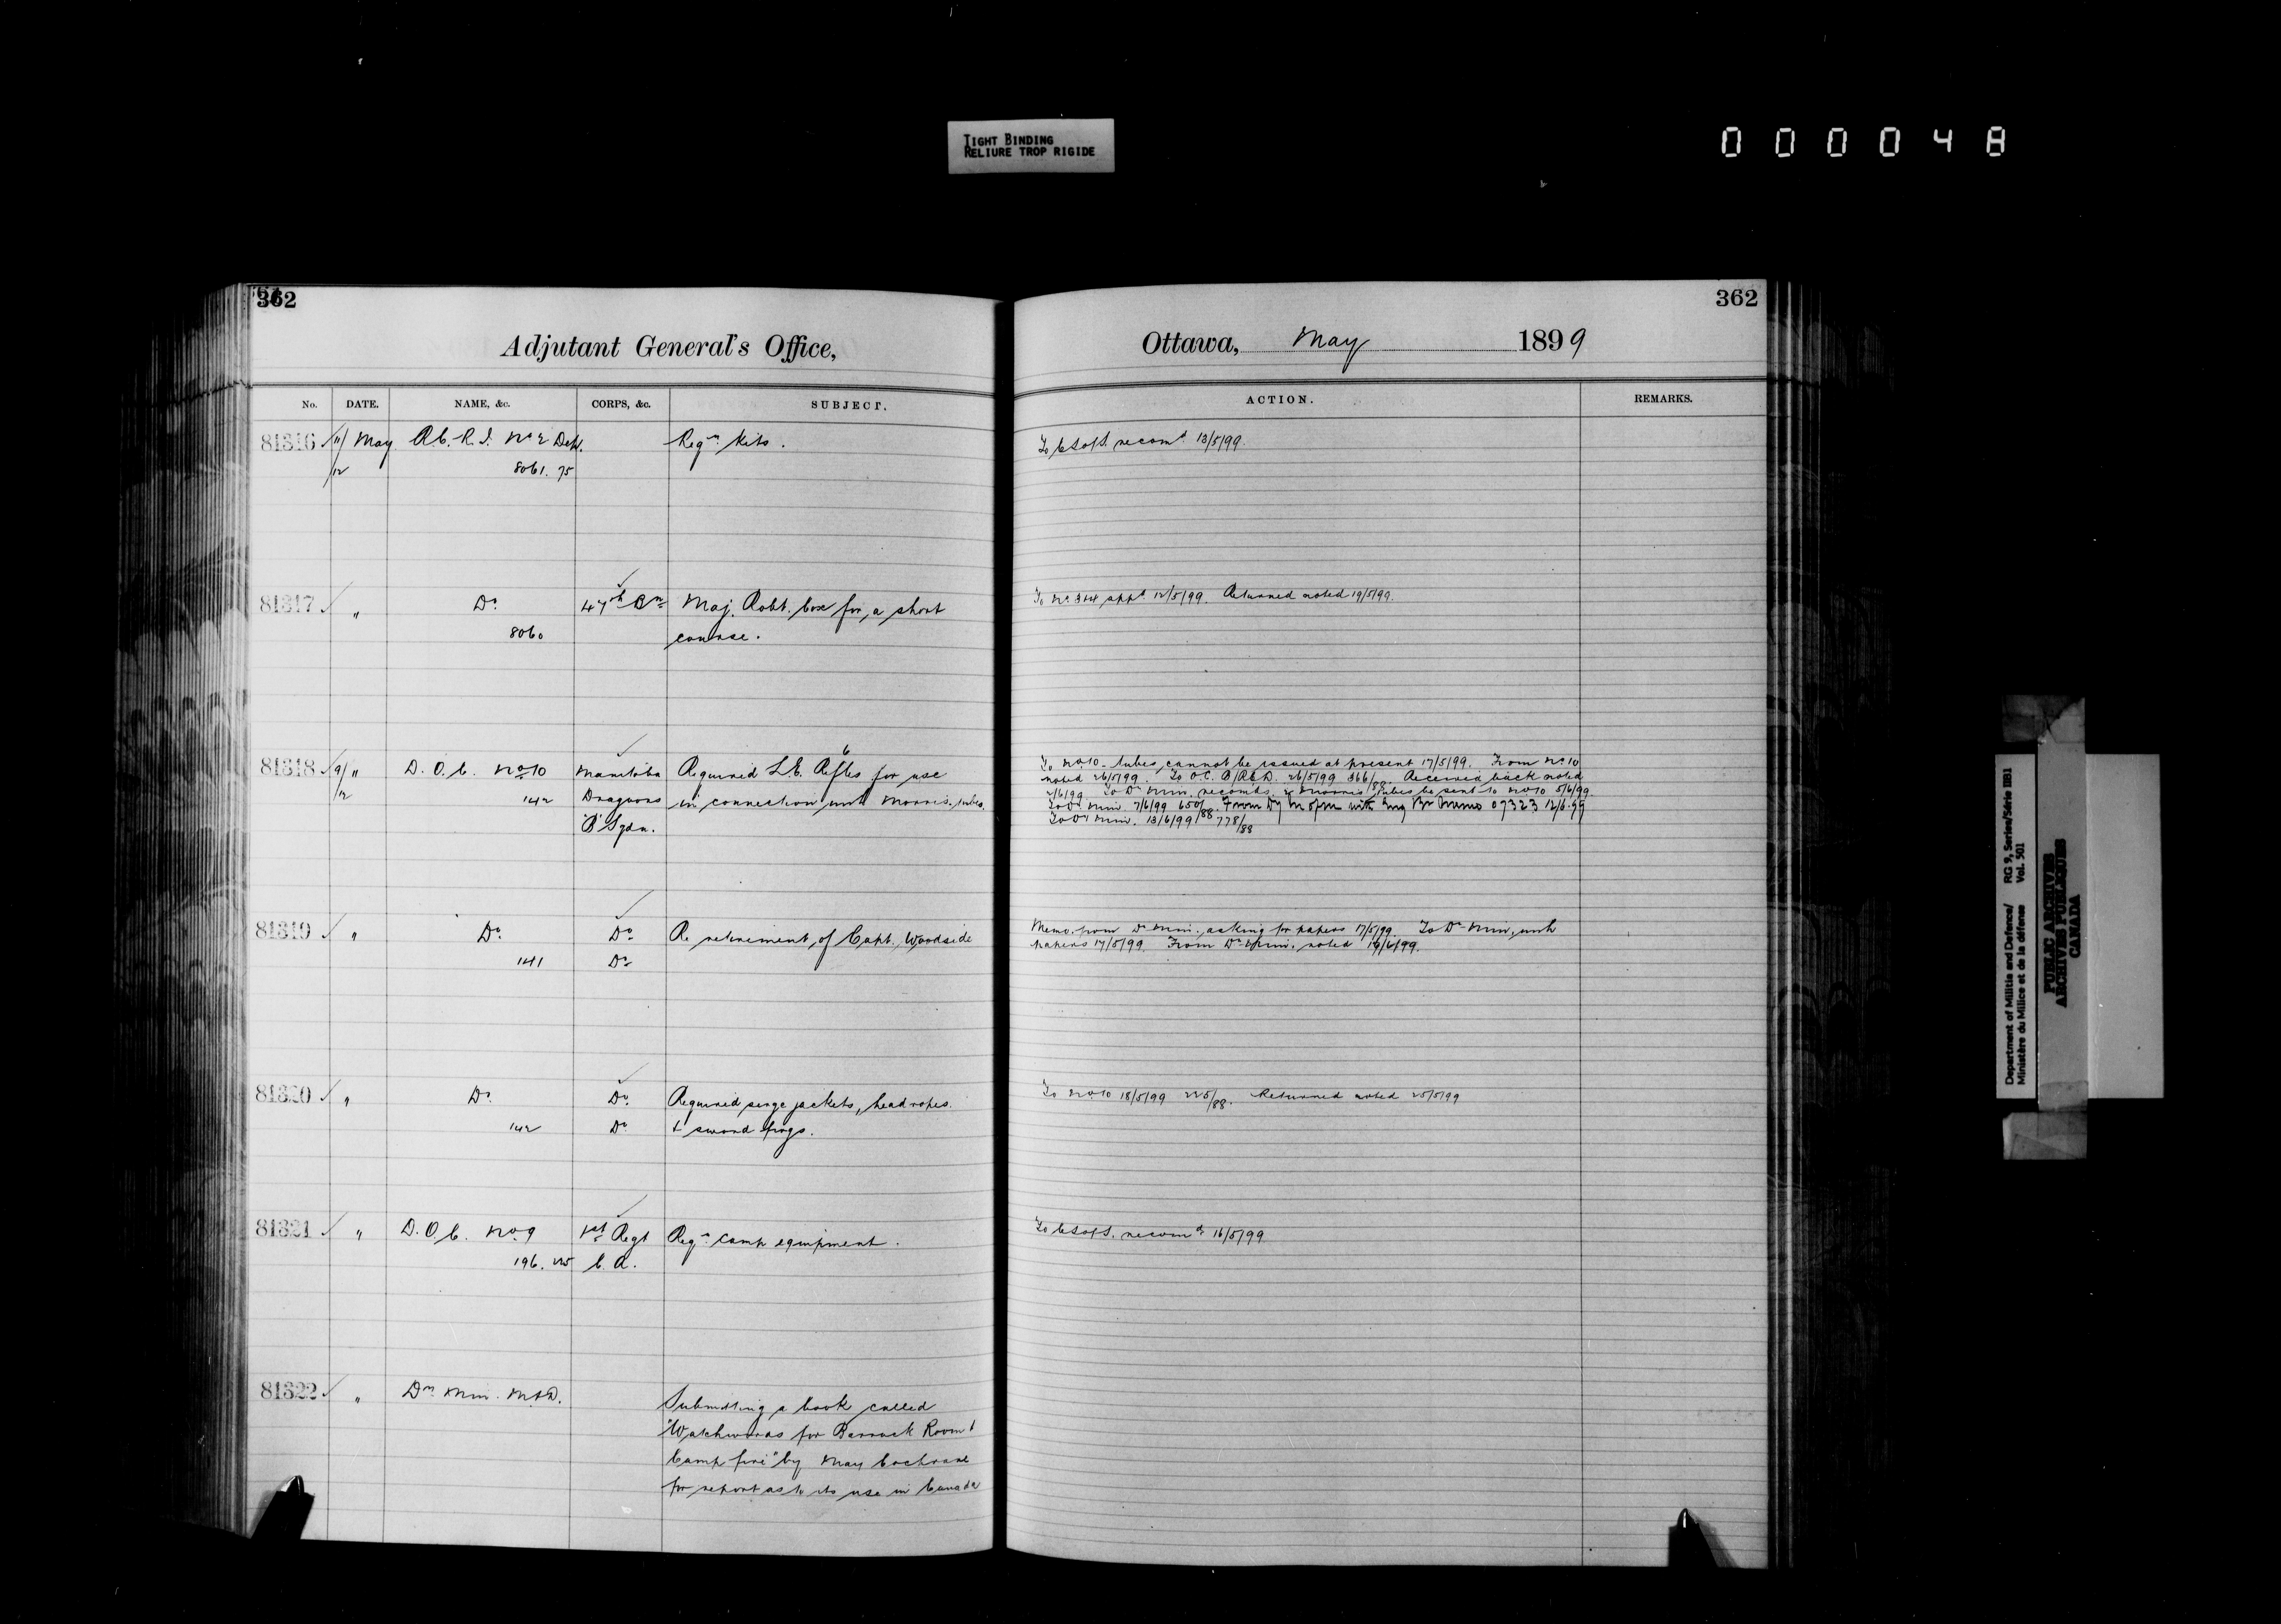 TIGHT BINDING
RELIURE TROP RIGIDE
000048
362
Adjutant General's Office,
No. DATE. NAME, &c. CORPS, &c. SUBJECT.
81316 11/12 May R.C.R.I. No 2 Dep. Reqn. kits.
8061. 75
81317 " Do. 47th Bn Maj. Robt. Cox for, a short
8060 course.
81318 9/12 " D.O.C. No 10 Manitoba Required 6 L.E. Rifles for use
142 Dragoons in connection with Morris, tubes.
"B" Sqdn.
81319 " Do. Do. Re retirement, of Capt., Woodside
141 Do
81320 " Do. Do. Required serge jackets, head ropes.
142 Do. & sword frogs.
81321 " D.O.C. No. 9 1st Regt Reqn. camp equipment.
196. C.A.
81322 " Dy Min. M&D.
Submitting a book called
"Watchwords for Barrack Room &
Camp fire" by May Cochrane
for report as to its use in Canada
362
Ottawa, May 1899
ACTION. REMARKS.
To C.S. of S. recomd. 13/5/99.
To No. 3 & 4 appd. 12/5/99. Returned noted 19/5/99.
To No 10 - tubes, cannot be issued at present 17/5/99. From No 10
noted 26/5/99. To O.C. 26/5/99 366/88. Received back noted
2/6/99 To Dy Min. recomds. Morris, tubes be sent to No 10 5/6/99.
To Dy Min. 7/6/99 650/88. From Dy M of M with Memo 07323 12/6.99
To Dy Min. 13/6/99 778/88
Memo. from Dy Min., asking for papers 17/5/99. To Dy Min., with
papers 17/5/99. From Dy Min., noted 19/6/99.
To No 10 18/5/99 225/88. Returned noted 25/5/99
To C.S. of S. recomd. 16/5/99
Department of Militia and Defence/ RG 9, Series/Série IIB1
Ministère du Milice et de la défense Vol. 501
PUBLIC ARCHIVES
ARCHIVES PUBLIQUES
CANADA